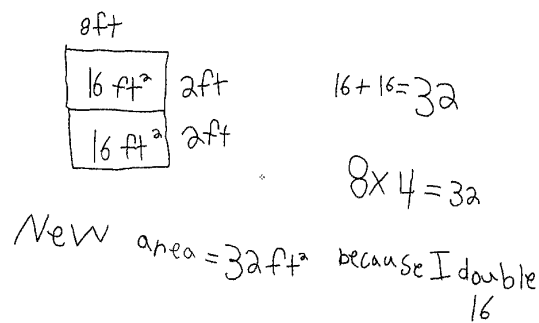 8ft
16 ft² 2ft
16 ft² 2ft
16 + 16 = 32
8 × 4 = 32
New area = 32ft² because I double
16